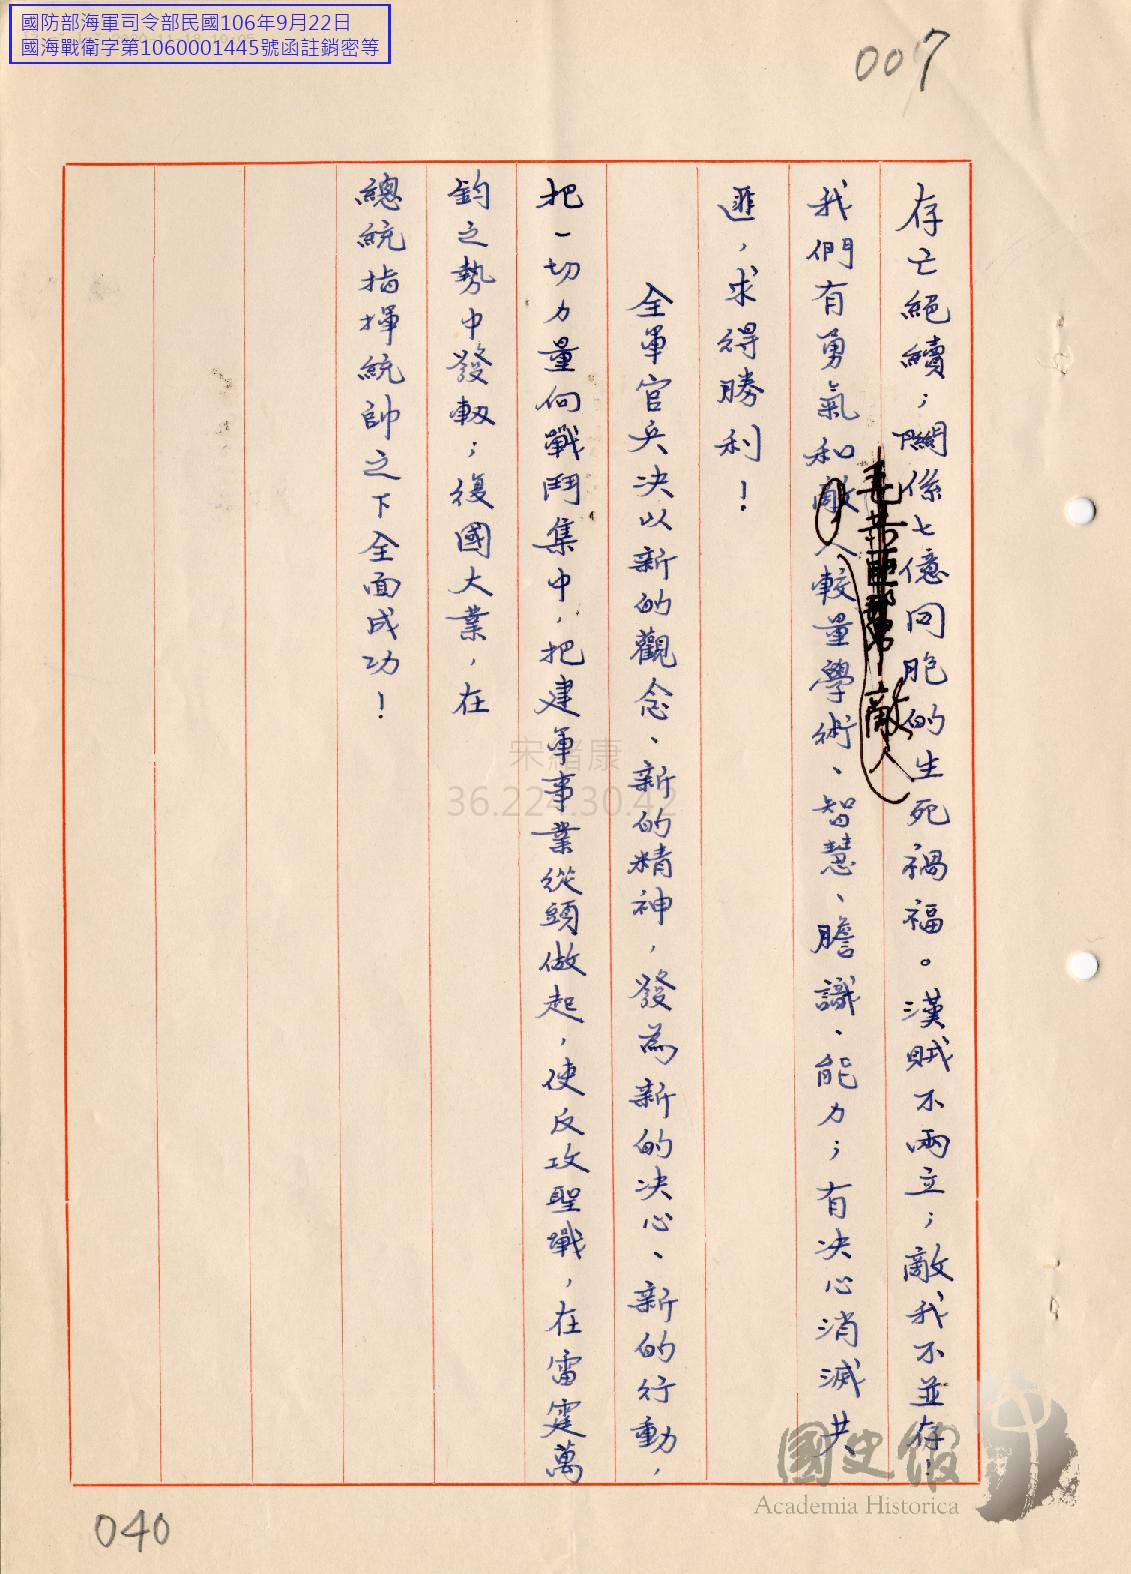 國防部海軍司令部民國106年9月22日
國海戰衛字第1060001445號函註銷密等
007
存亡絕續；關係七億同胞的生死禍福。漢賊不兩立；敵我不並存！
毛共匪幫敵人
我們有勇氣和敵人較量學術、智慧、膽識、能力；有決心消滅共
匪，求得勝利！
全軍官兵決以新的觀念、新的精神，發為新的決心、新的行動，
把一切力量向戰鬥集中，把建軍事業從頭做起，使反攻聖戰，在雷霆萬
鈞之勢中發軔；復國大業，在
總統指揮統帥之下全面成功！
宋緒康
36.224.30.42
國史館
Academia Historica
040